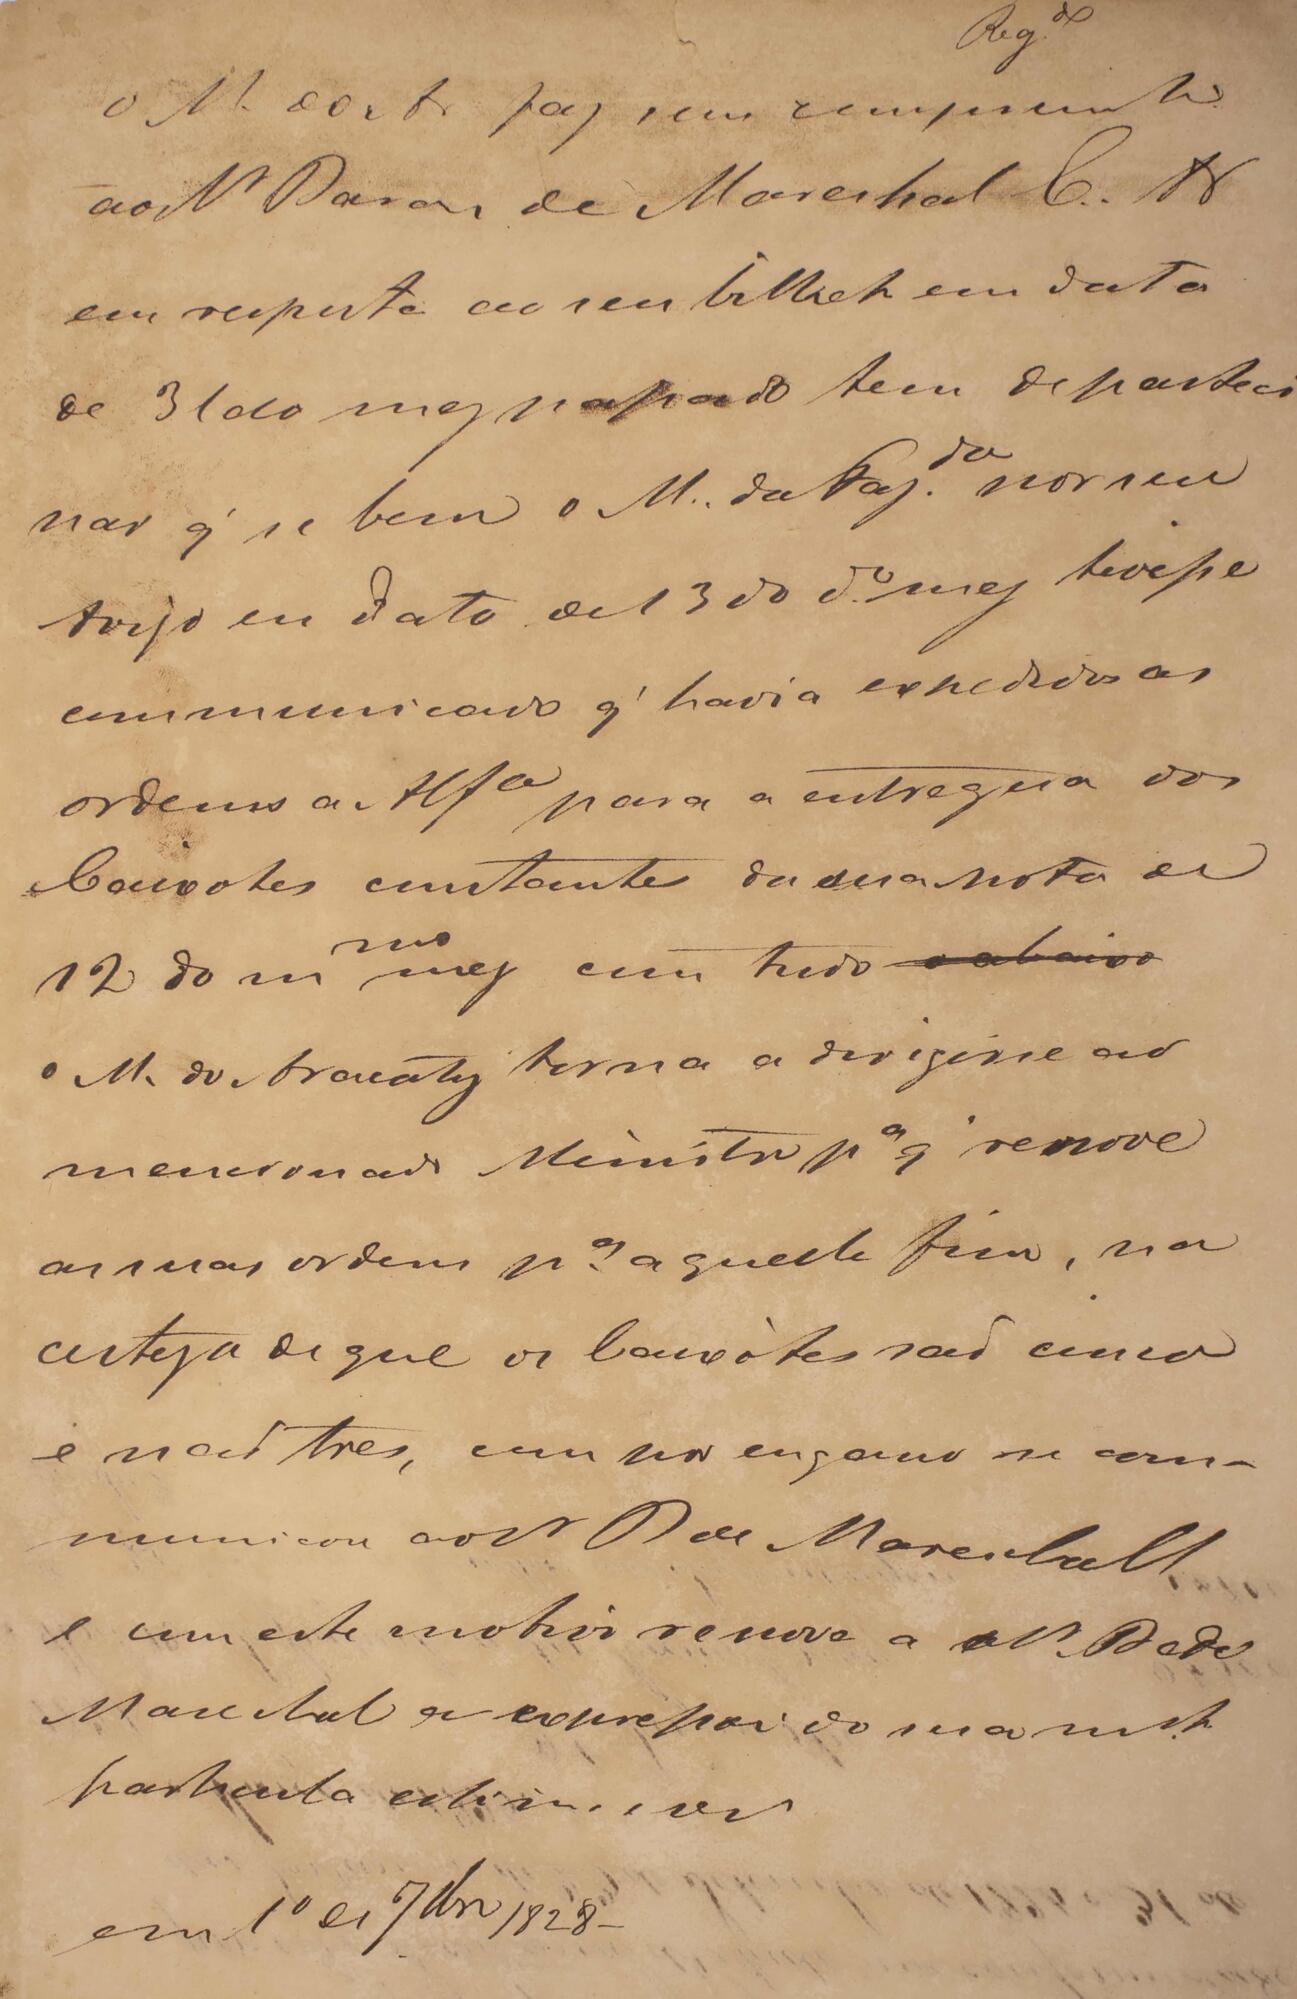 Reg.do
o M. de Ar faz seus cumprimentos
ao Sr Baron de Mareshal E. &
em resposta ao seu bilhete em data
de 31 do mez passado tem de parteci
par q' se bem o M. da Faz.da por seu
Avizo en data de 13 do do mez tivesse
communicado q' havia expedidos as
ordems a Alfa para a entregua dos
Caixotes constantes da sua nota de
12 do mmo mez com tudo o abaixo
o M. do Aracaty torna a dirigirse ao
mencionado Ministro pa q' renove
as suas ordens pa aquelle fim, na
certeza de que os Caixòtes saõ cinco
e naõ tres, com por engano se com-
municou ao Sr B de Mareschall
e com este motivo renove a o Sr. B de
Mareschal a expressoi da sua mt
particula estima e
em 1o de 7bro 1828-